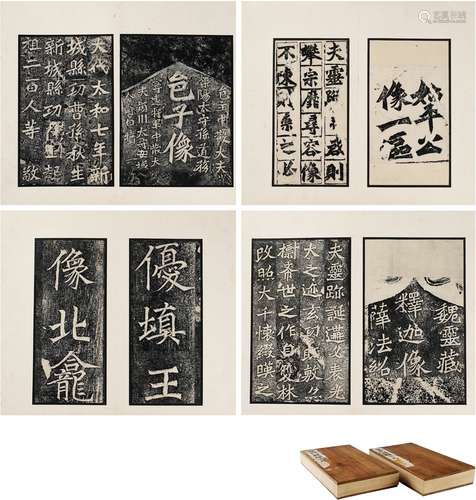 邑子像
邑主中散大夫
滎陽太守孫道務
大代太和七年新
城縣功曹孫秋生
新城縣功曹劉起
祖二百人等敬
始平公
像一區
夫靈跡則
攀宗靡尋容像
不陳則崇之必
優填王
像北龕
魏靈藏
釋迦像
薛法紹
夫靈跡誕遘必表光
大之迹玄功既敷亦
樹希世之作自雙林
改照大千懷綴暎之